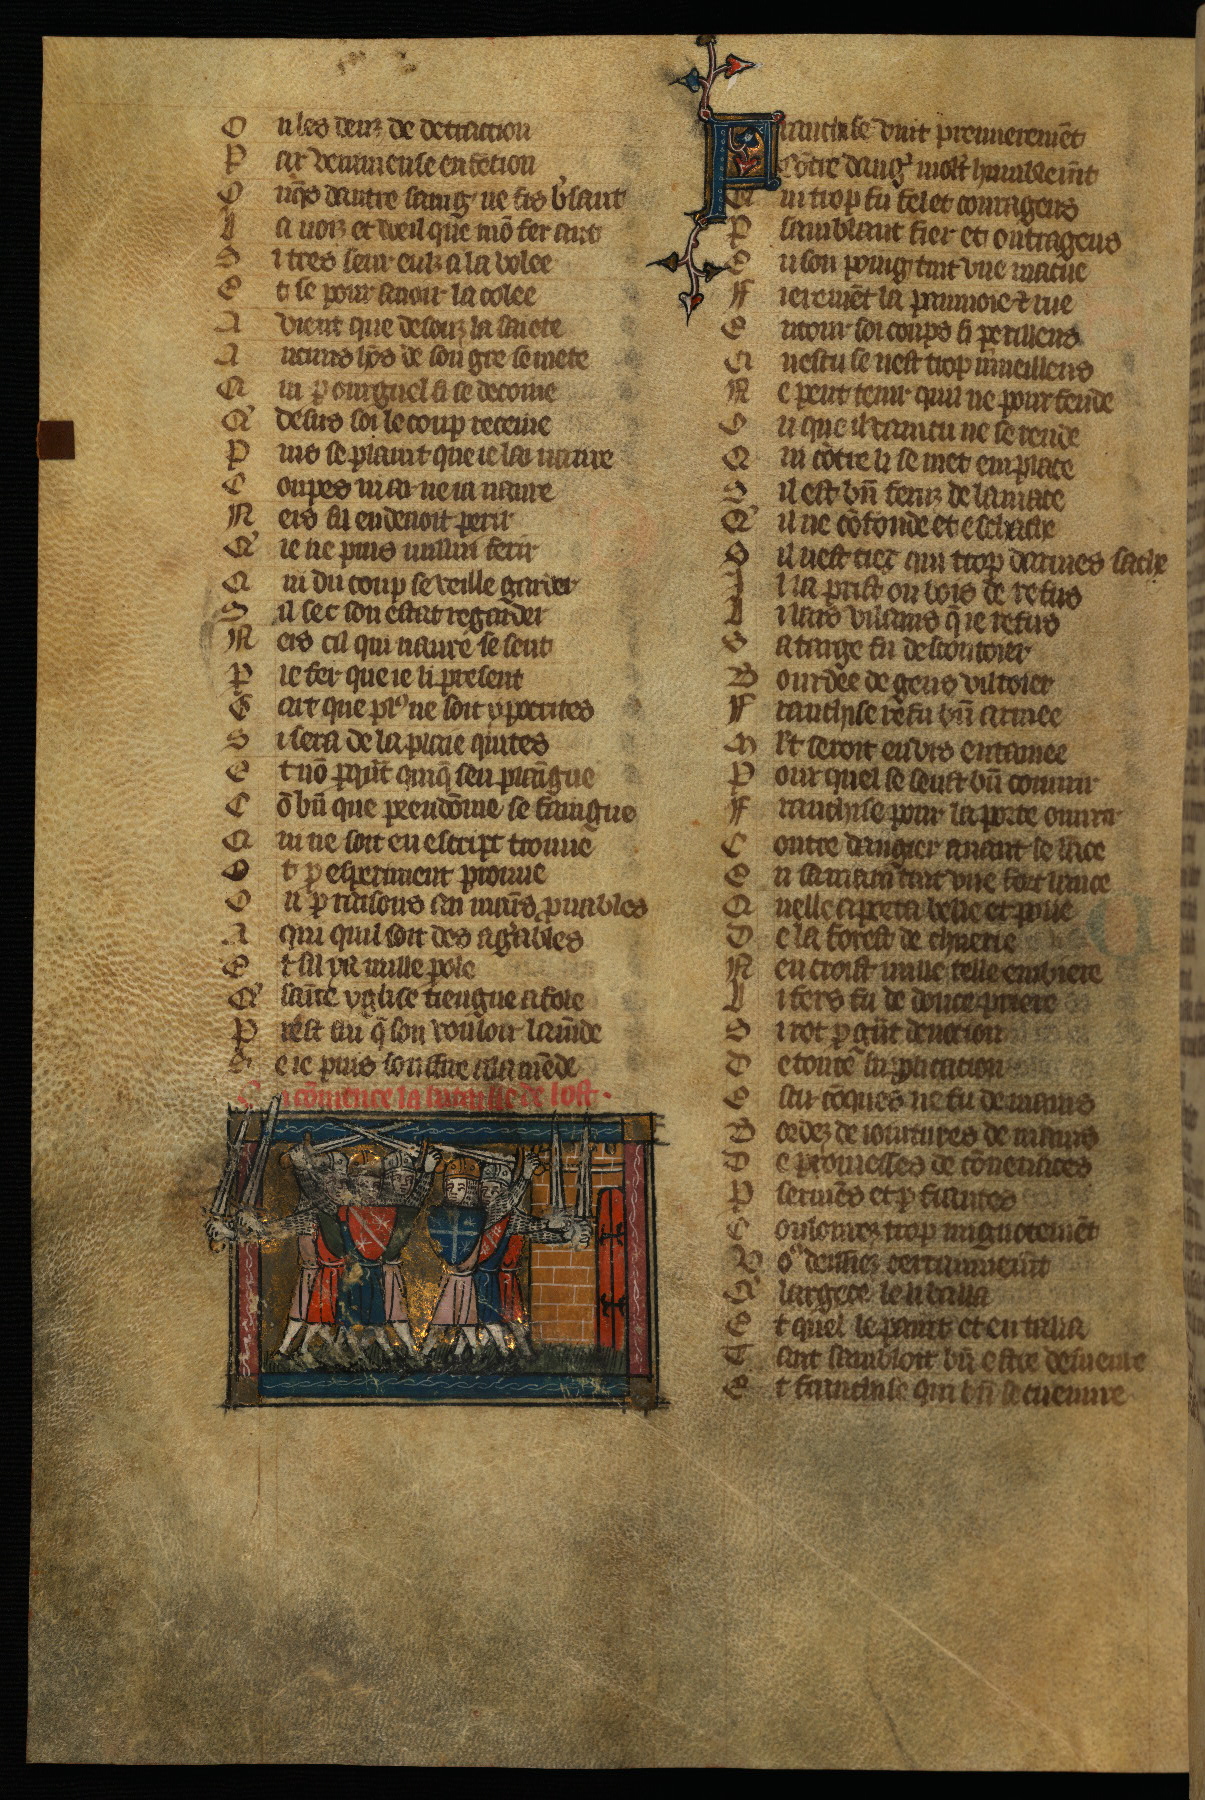 O u les deuz de detraction
P ar venimeuse entetion
O nq̃s dautre saing ne fis b̾sant
L a uoiz et weil que mõ fer aut
S i tres seur eulz a la volee
E t se pour auoir la colee
A vient que desouz la saiete
A ucuns hõs de son gre se mete
Q ui p orguel a se decoiue
Q̾ desus soi le coup receiue
P uis se plaint que ie lai naure
C oupes ni ai ne ia naure
M eis sil en deuoit perir
Q̾ ie ne puis nullui ferir
Q ui du coup se veille garder
S il set son estat regarder
M eis cil qui naure se sent
P ie fer que ie li present
G art que plꝰ ne soit ypocrites
S i sera de la plaie quites
E t nõ pqũt quiq̃ sen plaigne
C õbñ que preudõme se faigne
Q ui ne soit en escript trouue
O t p experiment prouue
O u p raisons au mains prouables
A qui quil soit desagables
E t sil ya nulle pole
Q̾ saite yglise tiengne a fole
P rest sui q̃ son vouloir lamde
S e ie puis souffire a lamẽde
Ci cõmence la bataille de lost.
Franchise vint premieremẽt
Cõtre dang̾ molt humblemt̃
Q ui trop fu fel et courageus
P samblant fier et outrageus
E n son poing tint vne macue
F ieremẽt la paumoie ⁊ rue
E ntour soi coups si perilleus
Q nescu se nest trop mueilleus
N e peut tenir quil ne pourfende
O u que il vaincu ne se rende
Q ui cõtre li se met en place
S il est bñ feruz de la mace
Q̾ il ne cõfonde et esche
O il nest tiex qui trop darmes sache
I l la prist ou bois de refus
L i lais vilains q̃ ie refus
S a targe fu destoutoier
B ourdee de gens viltoier
F ranchise refu bñ armee
M lt seroit enuis entamee
P our quel se seust bñ couurir
F ranchise pour la porte ouurir
C ontre dangier auant se lãce
E n sa main tint vne fort lance
Q uelle aporta bele et polie
D e la forest de chuerie
N en croist nulle telle en biere
L i fers fu de douce priere
S i rot p gñt deuotion
D e toute suplication
E stu cõques ne fu de mains
B ordez de iointures de mains
D e promesses de cõuenãces
P sermẽs et p fiances
C ouloures trop mignotemẽt
V oꝰ deissiez certainnemt̃
Q̾ largece le li bailla
E t quel le paint et entailla
T ant sambloit bñ estre de sueure
E t franchise qui bñ se cueuure